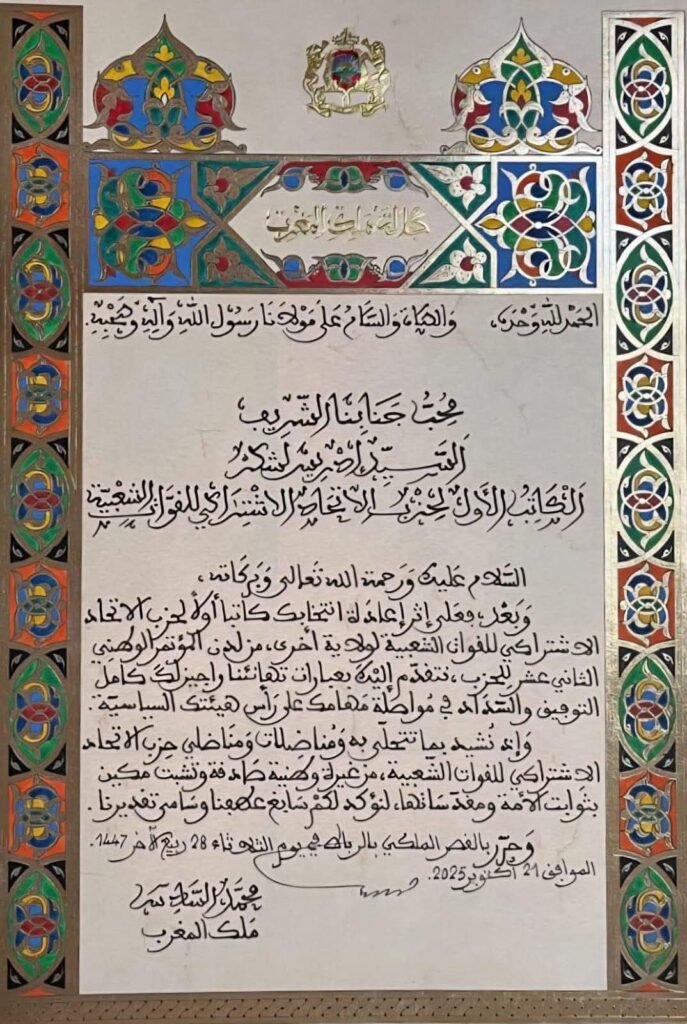 جلالة ملك المغرب
الحمد لله وحده، والصلاة والسلام على مولانا رسول الله وآله وصحبه.
محب جنابنا الشريف
السيد ادريس لشكر
الكاتب الأول لحزب الاتحاد الاشتراكي للقوات الشعبية
السلام عليك ورحمة الله تعالى وبركاته،
وبعد، فعلى إثر إعادة انتخابك كاتبا أولا لحزب الاتحاد
الاشتراكي للقوات الشعبية لولاية أخرى، من لدن المؤتمر الوطني
الثاني عشر للحزب، نتقدم إليك بعبارات تهانئنا راجين لك كامل
التوفيق والسداد في مواصلة مهامك على رأس هيئتك السياسية.
وإذ نشيد بما تتحلى به ومناضلات ومناضلي حزب الاتحاد
الاشتراكي للقوات الشعبية، من غيرة وطنية صادقة وتشبث مكين
بثوابت الأمة ومقدساتها، لنؤكد لكم سابغ عطفنا وسامي تقديرنا.
وحرر بالقصر الملكي بالرباط في يوم الثلاثاء 28 ربيع الآخر 1447.
الموافق 21 أكتوبر 2025.
محمد السادس
ملك المغرب